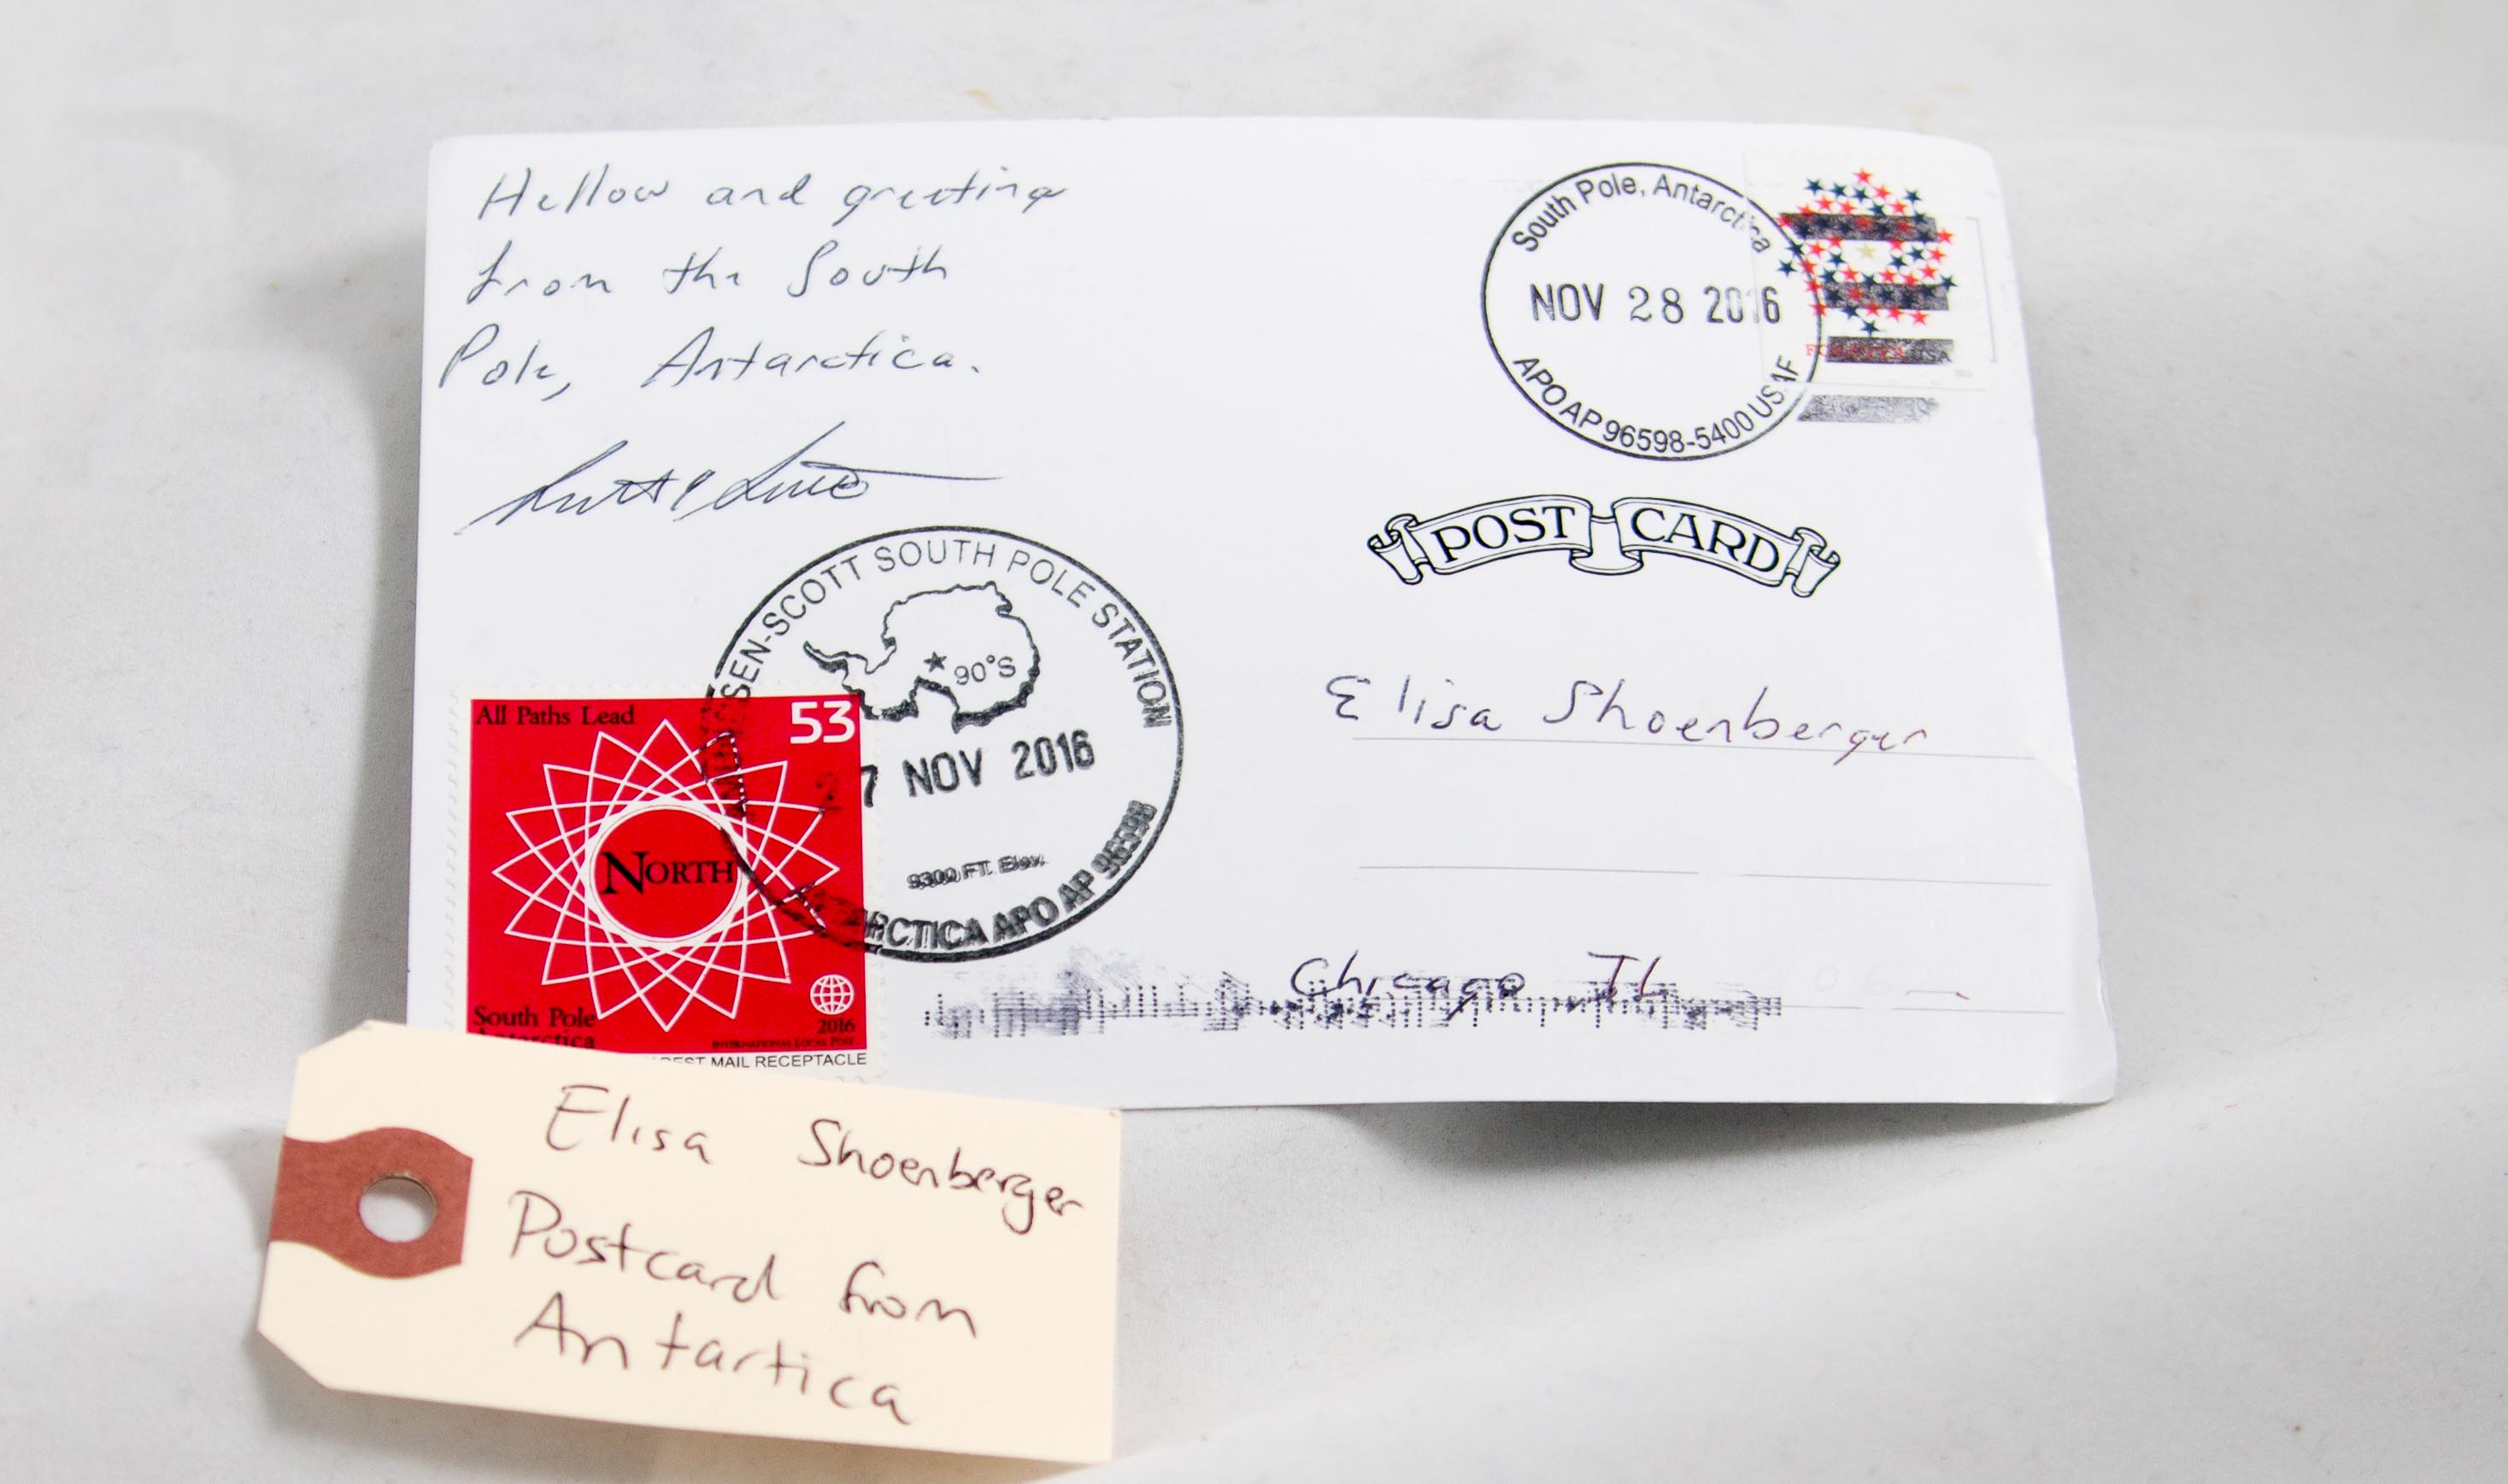 Hellow and greeting
from the South
Pole, Antarctica.
South Pole, Antarctica
NOV 28 2016
APO AP 96598-5400 USAF
FOREVER USA
POST CARD
SEN-SCOTT SOUTH POLE STATION
90°S
27 NOV 2016
9300 FT. Elev.
ANTARCTICA APO AP 96598
All Paths Lead
53
NORTH
South Pole
Antarctica
2016
INTERNATIONAL LOCAL POST
EST MAIL RECEPTACLE
Elisa Shoenberger
Chicago IL
Elisa Shoenberger
Postcard from
Antartica